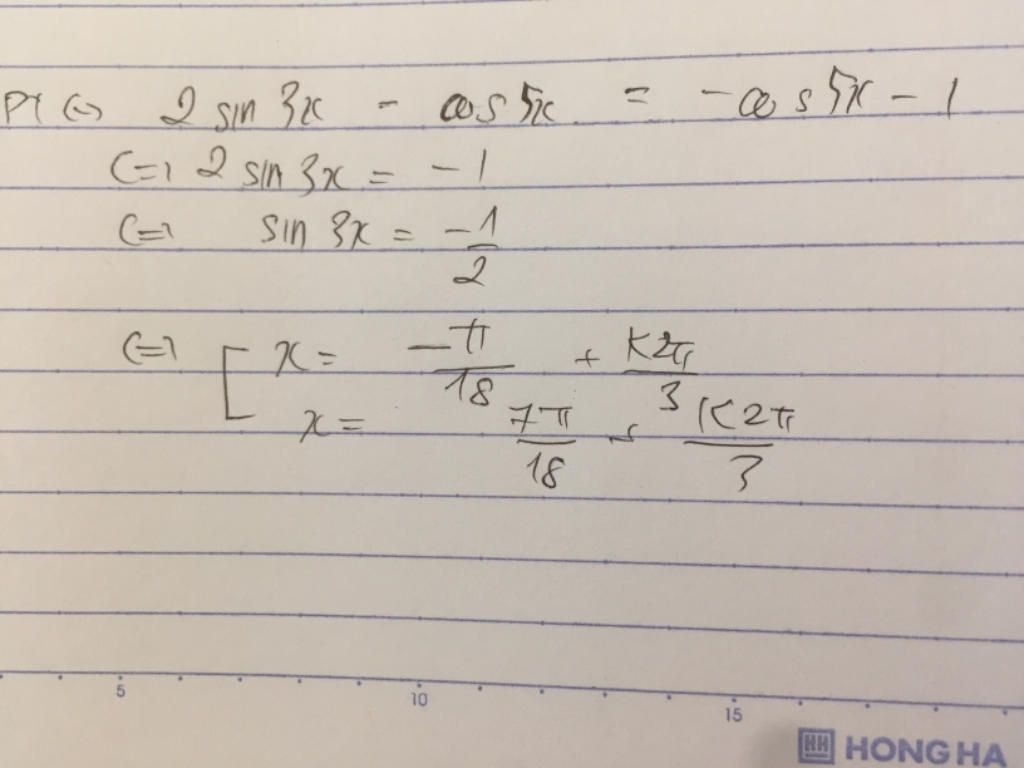 PT <=> 2 sin 3x - cos 5x = - cos 5x - 1
<=> 2 sin 3x = - 1
<=> sin 3x = -1/2
<=> [ x = -π/18 + k2π/3
x = 7π/18 + k2π/3
5 10 15
HH HONG HA